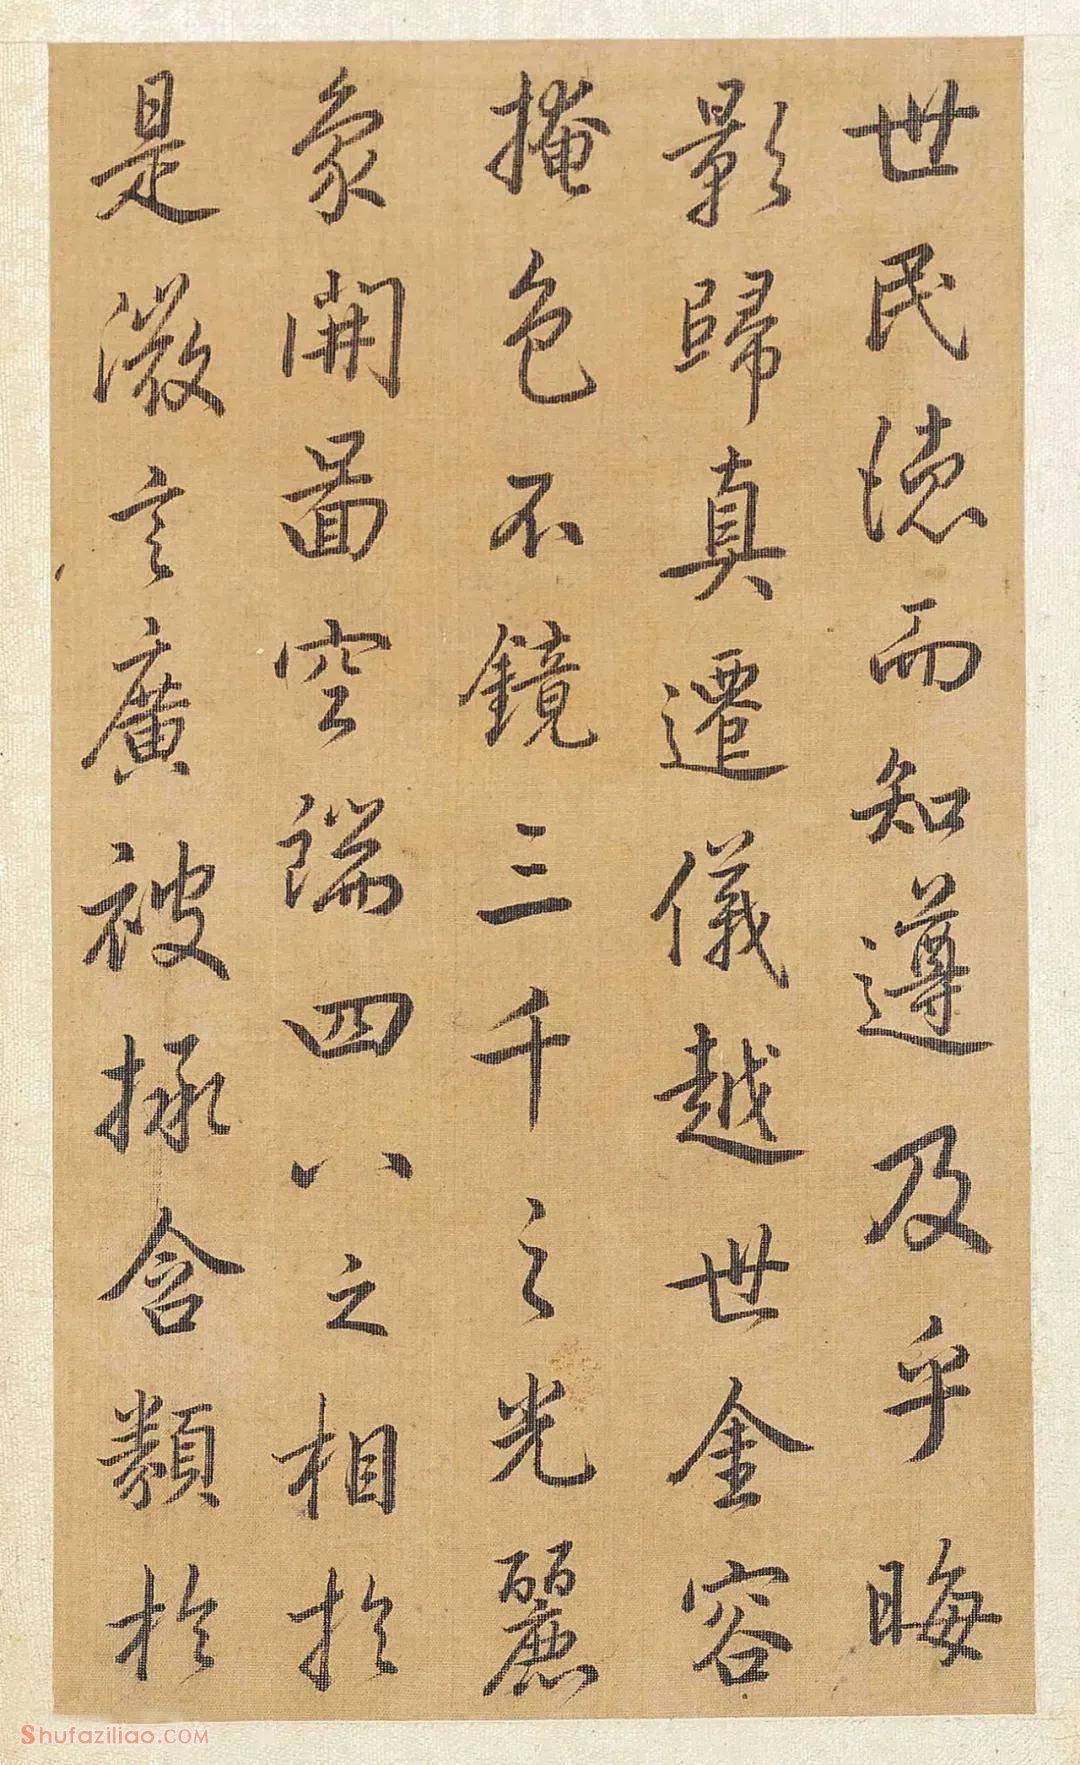 世民德而知遵及乎晦
影歸真遷儀越世金容
掩色不鏡三千之光麗
象開啚空端四八之相於
是微言廣被拯含類於
Shufaziliao.COM